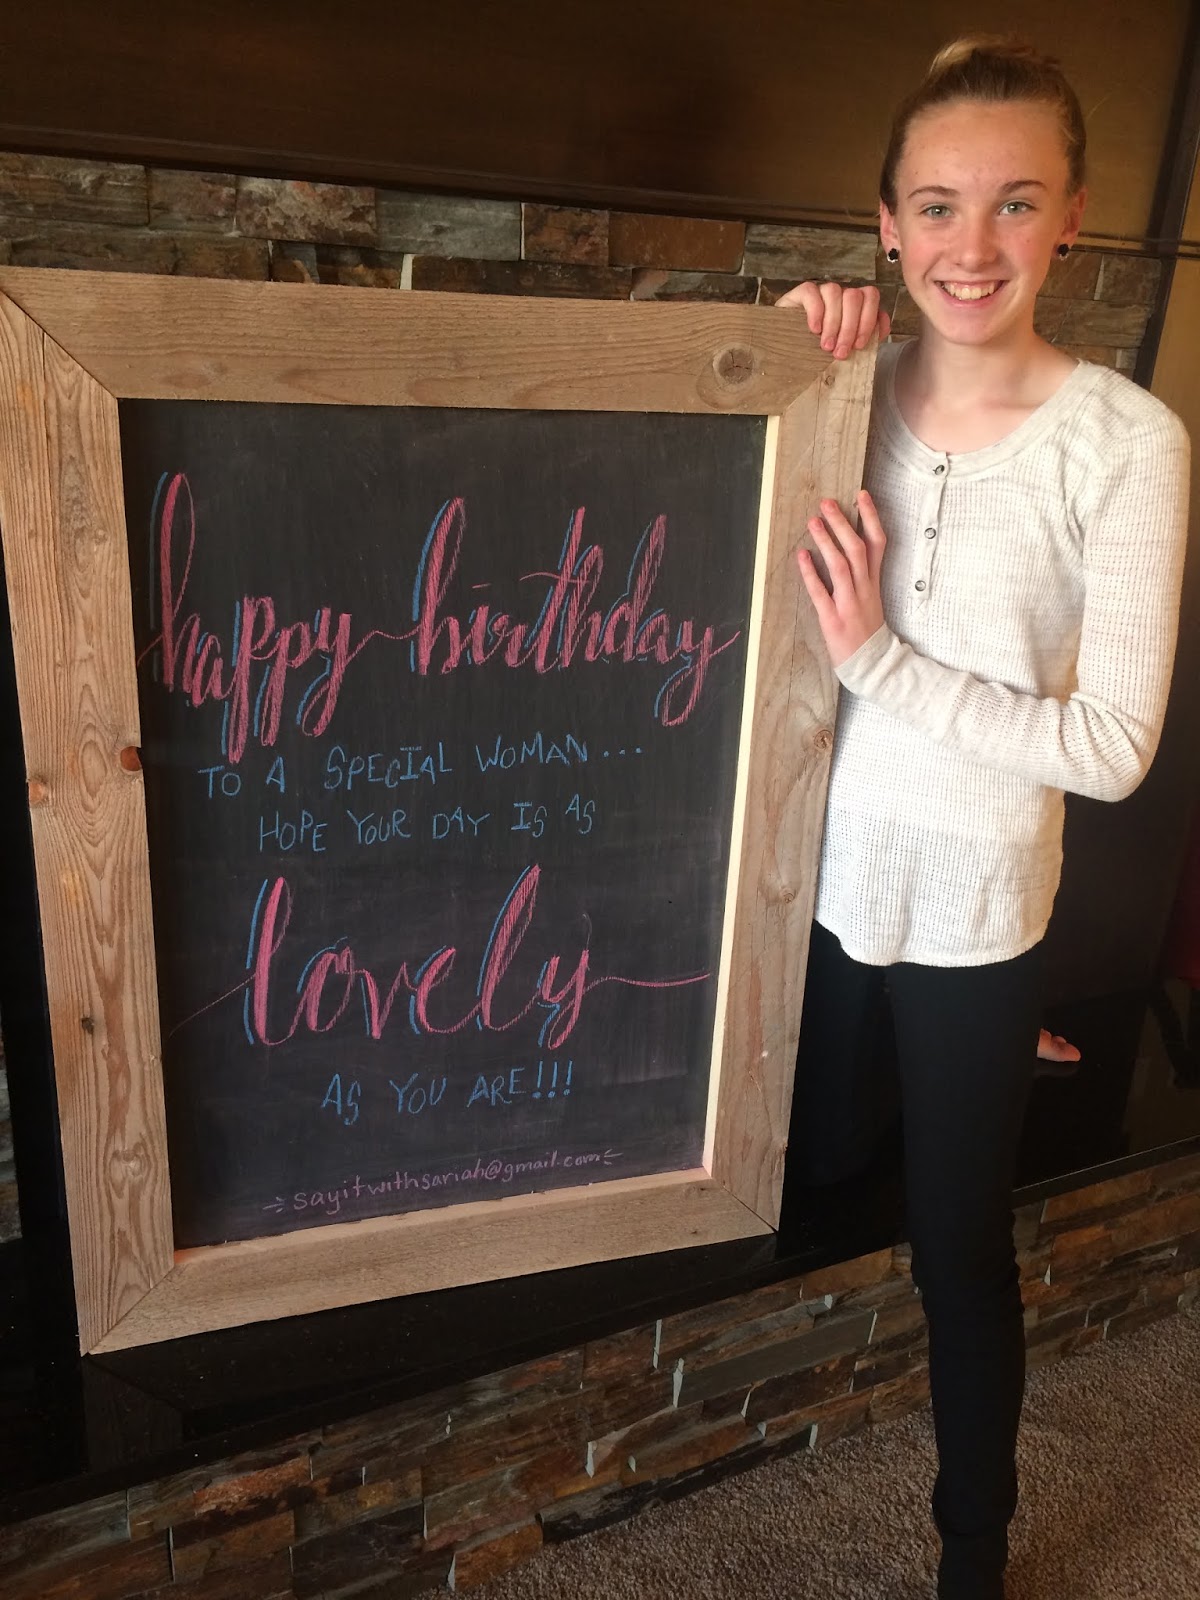 happy birthday
TO A SPECIAL WOMAN...
HOPE YOUR DAY IS AS
lovely
AS YOU ARE!!!
sayitwithsariah@gmail.com